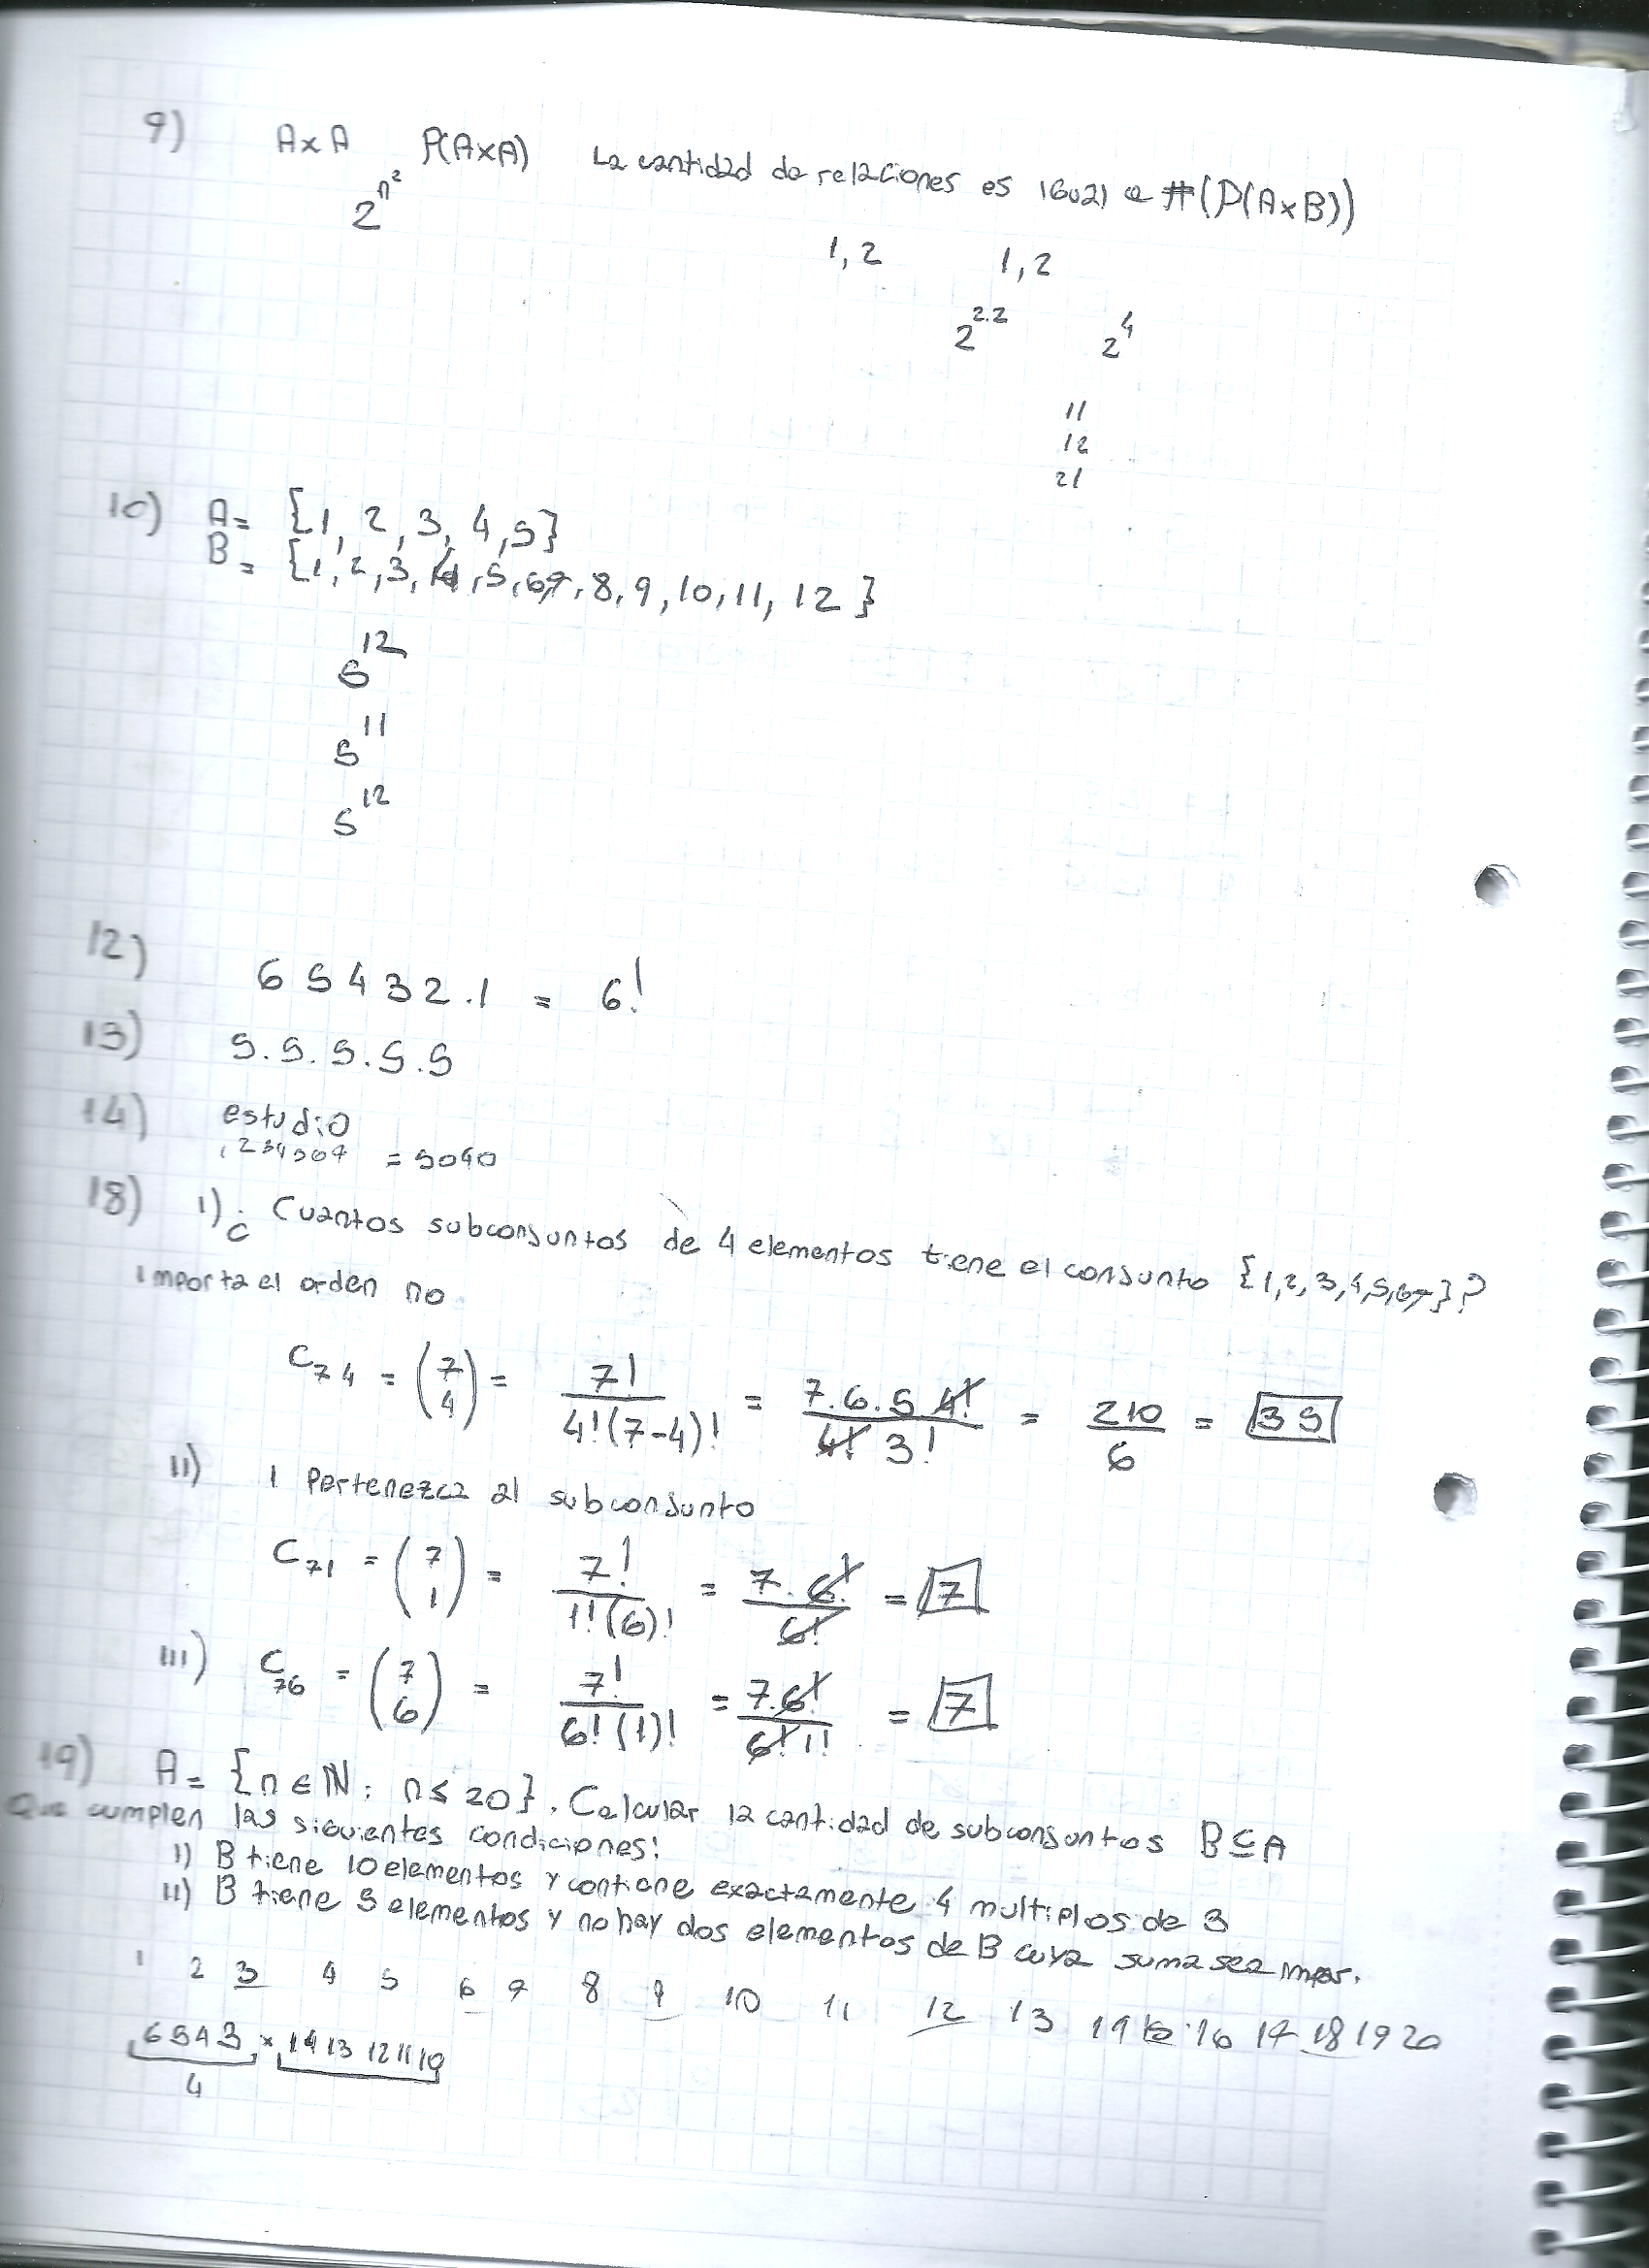 9) AxA P(AxA) La cantidad de relaciones es igual a #(P(AxB))
2^n²
1,2 1,2
2^2.2 2^4
11
12
21
10) A= {1, 2, 3, 4, 5}
B= {1, 2, 3, 4, 5, 6, 7, 8, 9, 10, 11, 12}
5^12
5^11
5^12
12) 6 5 4 3 2 . 1 = 6!
13) 5.5.5.5.5
14) estudio
1234567 = 5040
18) 1) ¿ Cuantos subconjuntos de 4 elementos tiene el conjunto {1,2,3,4,5,6,7}?
importa el orden no
C74 = (7 4) = 7!/4!(7-4)! = 7.6.5 4!/4! 3! = 210/6 = 35
II) 1 Pertenezca al subconjunto
C71 = (7 1) = 7!/1!(6)! = 7.6!/6! = 7
III) C76 = (7 6) = 7!/6!(1)! = 7.6!/6!1! = 7
19) A= {n ∈ ℕ: n ≤ 20}. Calcular la cantidad de subconjuntos B⊆A
Que cumplen las siguientes condiciones:
I) B tiene 10 elementos y contiene exactamente 4 multiplos de 3
II) B tiene 5 elementos y no hay dos elementos de B cuya suma sea impar.
1 2 3 4 5 6 7 8 9 10 11 12 13 14 15 16 17 18 19 20
6 5 4 3 x 14 13 12 11 10
4